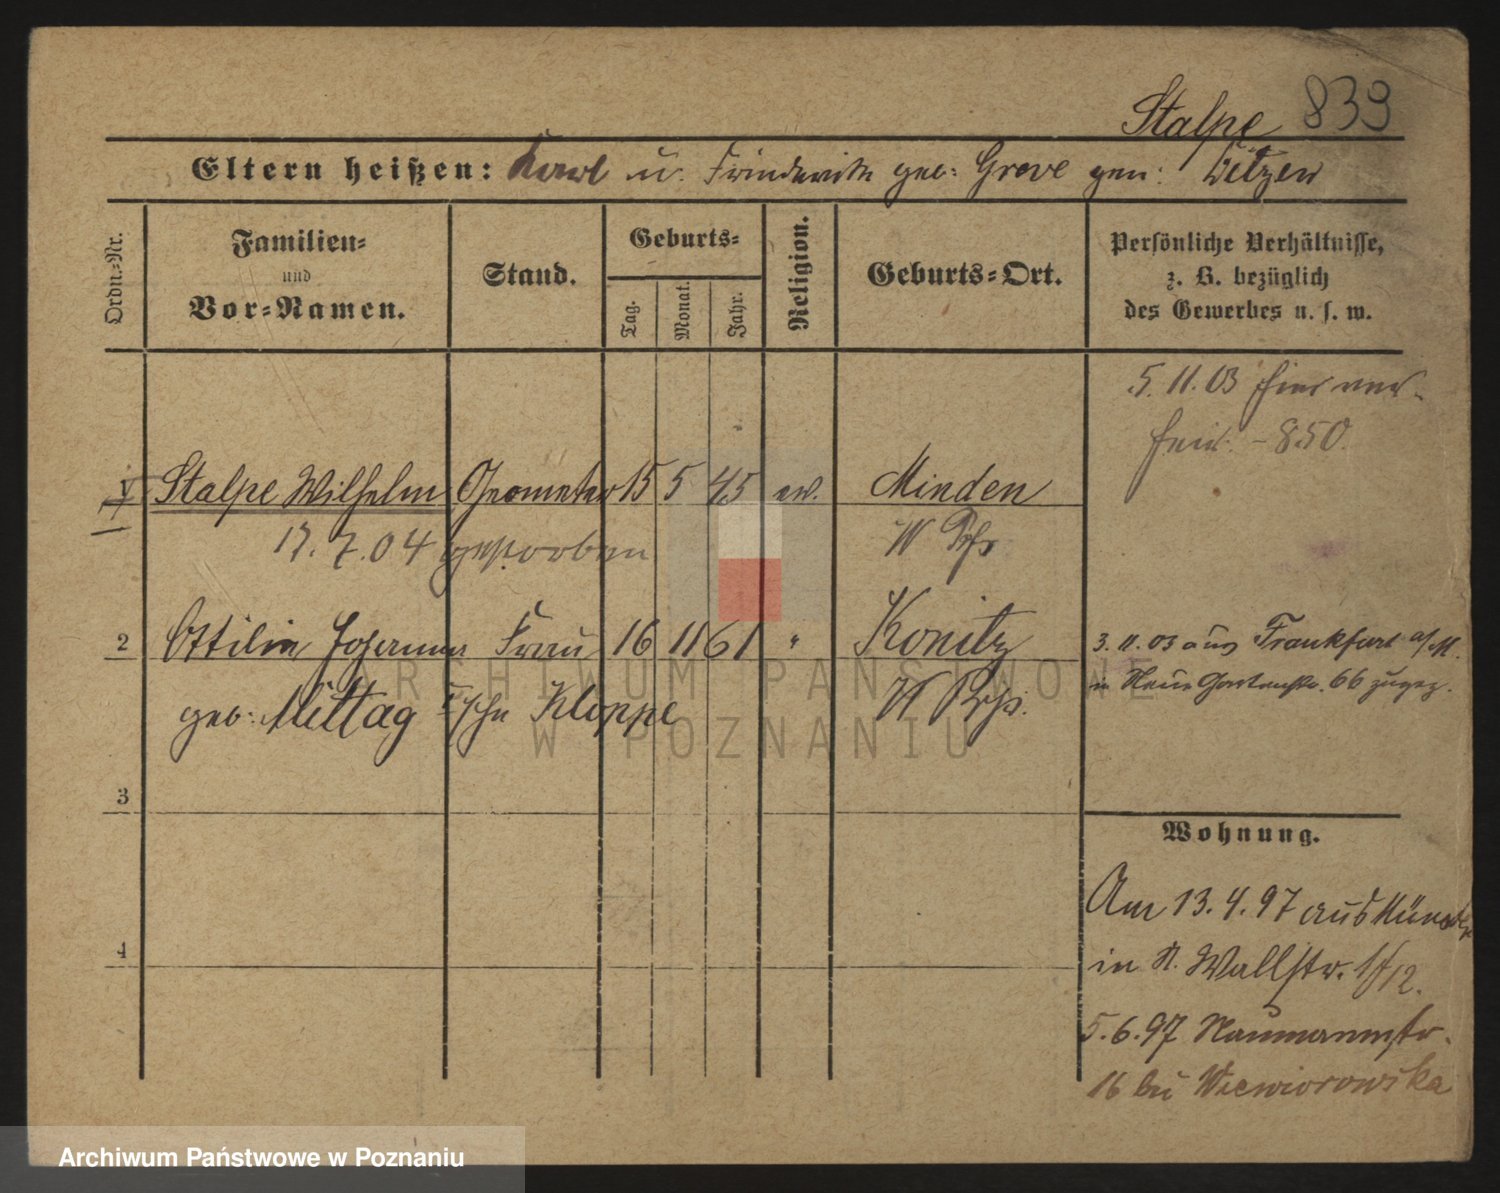 Stalpe 839
Eltern heißen: Karl u. Friederike geb: Greve gen: Tetzen
Ordn.-Nr.
Familien- und Vor-Namen.
Stand.
Geburts-
Tag. Monat. Jahr.
Religion.
Geburts-Ort.
Persönliche Verhältnisse,
z. B. bezüglich
des Gewerbes u. s. w.
5. 11. 03 hier ver-
heir. - 850.
1 Stalpe Wilhelm Geometer 15 5 45 ev. Minden
17. 7. 04 gestorben W
2 Ottilie Johanna Frau 16 11 61 " Konitz
geb: Mittag Kloppe W Prß.
3. 11. 03 aus Frankfurt a/M.
in Neue Gartenstr. 66 zugez.
3
Wohnung.
Am 13. 4. 97 aus Münster
in N. Wallstr. 12.
5. 6. 97 Naumannstr.
16 bei Wiewiorowska
4
ARCHIWUM PAŃSTWOWE
W POZNANIU
Archiwum Państwowe w Poznaniu